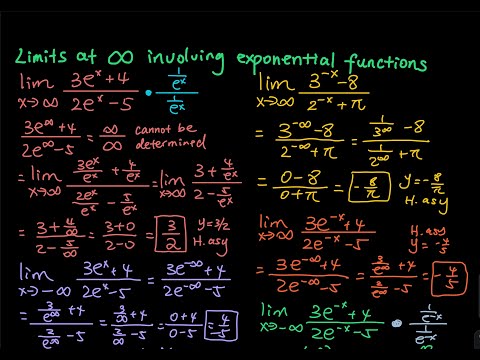 Limits at ∞ involving exponential functions
lim x→∞ (3e^x+4)/(2e^x-5) · (1/e^x)/(1/e^x)
(3e^∞+4)/(2e^∞-5) = ∞/∞ cannot be determined
= lim x→∞ (3e^x/e^x + 4/e^x)/(2e^x/e^x - 5/e^x) = lim x→∞ (3+4/e^x)/(2-5/e^x)
= (3+4/∞)/(2-5/∞) = (3+0)/(2-0) = 3/2 y=3/2 H.asy
lim x→-∞ (3e^x+4)/(2e^x-5) = (3e^-∞+4)/(2e^-∞-5)
= (3/e^∞+4)/(2/e^∞-5) = (3/∞+4)/(2/∞-5) = (0+4)/(0-5) = -4/5
lim x→∞ (3^-x-8)/(2^-x+π)
= (3^-∞-8)/(2^-∞+π) = (1/3^∞-8)/(1/2^∞+π)
= (0-8)/(0+π) = -8/π y=-8/π H.asy
lim x→∞ (3e^-x+4)/(2e^-x-5) H.asy y=-4/5
= (3e^-∞+4)/(2e^-∞-5) = (3/e^∞+4)/(2/e^∞-5) = -4/5
lim x→-∞ (3e^-x+4)/(2e^-x-5) · (1/e^-x)/(1/e^-x)